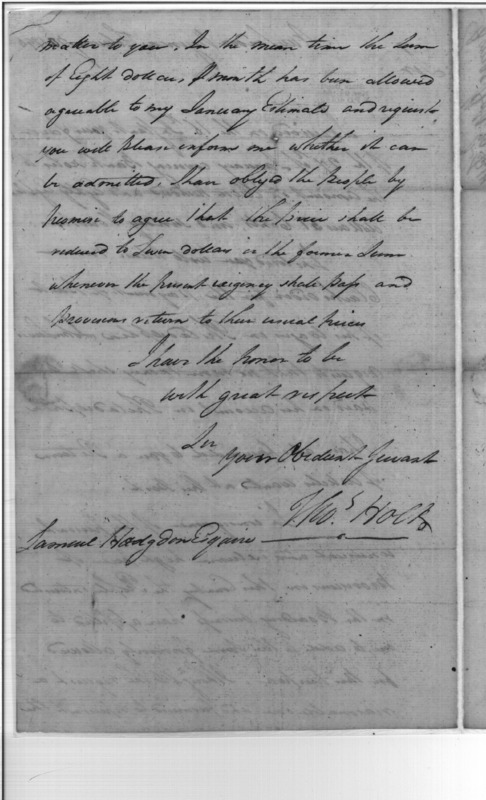 matter to you. In the mean time the Sum
of Eight dollars, ⅌ month has been allowed
agreeable to my January Estimate and request
you will please inform me whether it can
be admitted. I have obliged the people by
promise to agree that the price shall be
reduced to Seven dollars or the former Sum
whenever the present exigency shall pass and
provisions return to their usual prices
I have the honor to be
with great respect
Sir
your Obedient Servant
Thos Holt
Samuel Hodgdon Esquire